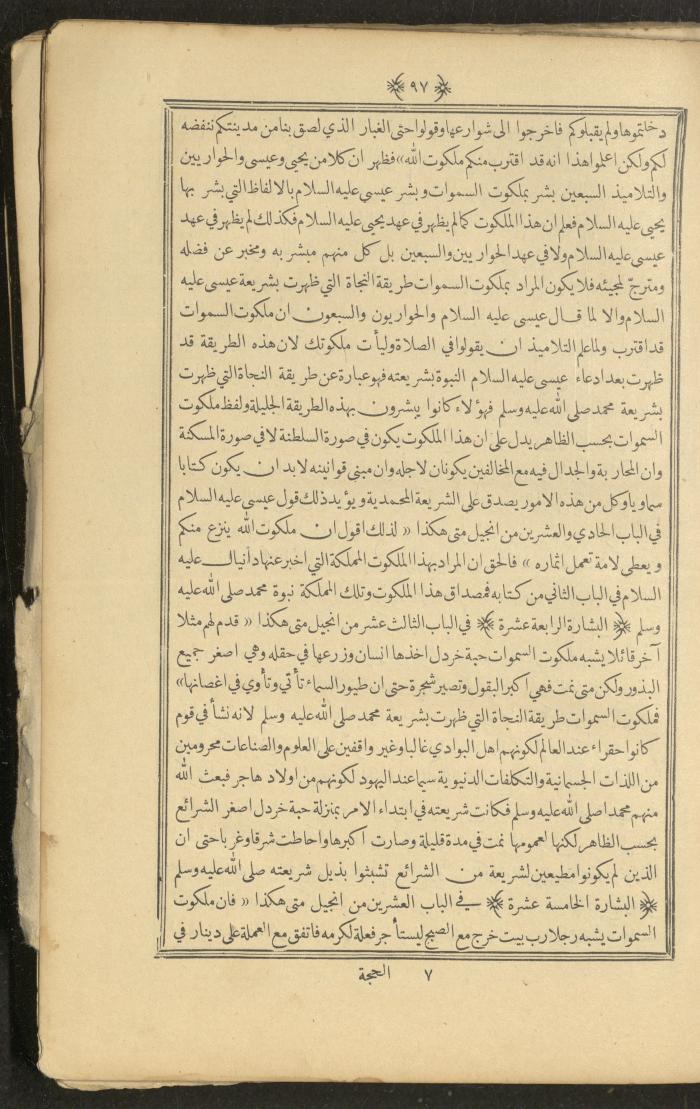 ﴿ ٩٧ ﴾
دخلتموها ولم يقبلوكم فاخرجوا الى شوارعها وقولوا حتى الغبار الذي لصق بنا من مدينتكم ننفضه
لكم ولكن اعلموا هذا انه قد اقترب منكم ملكوت الله» فظهر ان كلا من يحيى وعيسى والحواريين
والتلاميذ السبعين بشر بملكوت السموات وبشر عيسى عليه السلام بالالفاظ التي بشر بها
يحيى عليه السلام فعلم ان هذا الملكوت كما لم يظهر في عهد يحيى عليه السلام فكذلك لم يظهر في عهد
عيسى عليه السلام ولا في عهد الحواريين والسبعين بل كل منهم مبشر به ومخبر عن فضله
ومترجّ لمجيئه فلا يكون المراد بملكوت السموات طريقة النجاة التي ظهرت بشريعة عيسى عليه
السلام والا لما قال عيسى عليه السلام والحواريون والسبعون ان ملكوت السموات
قد اقترب ولما علم التلاميذ ان يقولوا في الصلاة وليأت ملكوتك لان هذه الطريقة قد
ظهرت بعد ادعاء عيسى عليه السلام النبوة بشريعته فهو عبارة عن طريقة النجاة التي ظهرت
بشريعة محمد صلى الله عليه وسلم فهؤلاء كانوا يبشرون بهذه الطريقة الجليلة ولفظ ملكوت
السموات بحسب الظاهر يدل على ان هذا الملكوت يكون في صورة السلطنة لا في صورة المسكنة
وان المحاربة والجدال فيه مع المخالفين يكونان لاجله وان مبنى قوانينه لا بد ان يكون كتابا
سماويا وكل من هذه الامور يصدق على الشريعة المحمدية ويؤيد ذلك قول عيسى عليه السلام
في الباب الحادي والعشرين من انجيل متى هكذا « لذلك اقول ان ملكوت الله ينزع منكم
ويعطى لامة تعمل اثماره » فالحق ان المراد بهذا الملكوت المملكة التي اخبر عنها دانيال عليه
السلام في الباب الثاني من كتابه فمصداق هذا الملكوت وتلك المملكة نبوة محمد صلى الله عليه
وسلم ﴿ البشارة الرابعة عشرة ﴾ في الباب الثالث عشر من انجيل متى هكذا « قدم لهم مثلا
آخر قائلا يشبه ملكوت السموات حبة خردل اخذها انسان وزرعها في حقله وهي اصغر جميع
البذور ولكن متى نمت فهي اكبر البقول وتصير شجرة حتى ان طيور السماء تأتي وتأوي في اغصانها»
فملكوت السموات طريقة النجاة التي ظهرت بشريعة محمد صلى الله عليه وسلم لانه نشأ في قوم
كانوا حقراء عند العالم لكونهم اهل البوادي غالبا وغير واقفين على العلوم والصناعات محرومين
من اللذات الجسمانية والتكلفات الدنيوية سيما عند اليهود لكونهم من اولاد هاجر فبعث الله
منهم محمدا صلى الله عليه وسلم فكانت شريعته في ابتداء الامر بمنزلة حبة خردل اصغر الشرائع
بحسب الظاهر لكنها لعمومها نمت في مدة قليلة وصارت اكبرها واحاطت شرقا وغربا حتى ان
الذين لم يكونوا مطيعين لشريعة من الشرائع تشبثوا بذيل شريعته صلى الله عليه وسلم
﴿ البشارة الخامسة عشرة ﴾ في الباب العشرين من انجيل متى هكذا « فان ملكوت
السموات يشبه رجلا رب بيت خرج مع الصبح ليستأجر فعلة لكرمه فاتفق مع العملة على دينار في
٧ الحجة